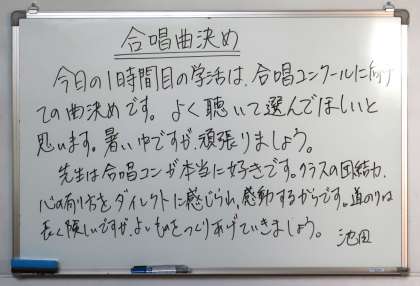 合唱曲決め
今日の1時間目の学活は、合唱コンクールに向け
ての曲決めです。よく聴いて選んでほしいと
思います。暑い中ですが、頑張りましょう。
先生は合唱コンが本当に好きです。クラスの団結力、
心の有り方をダイレクトに感じられ、感動するからです。道のりは
長く険しいですが、よいものをつくりあげていきましょう。
池田